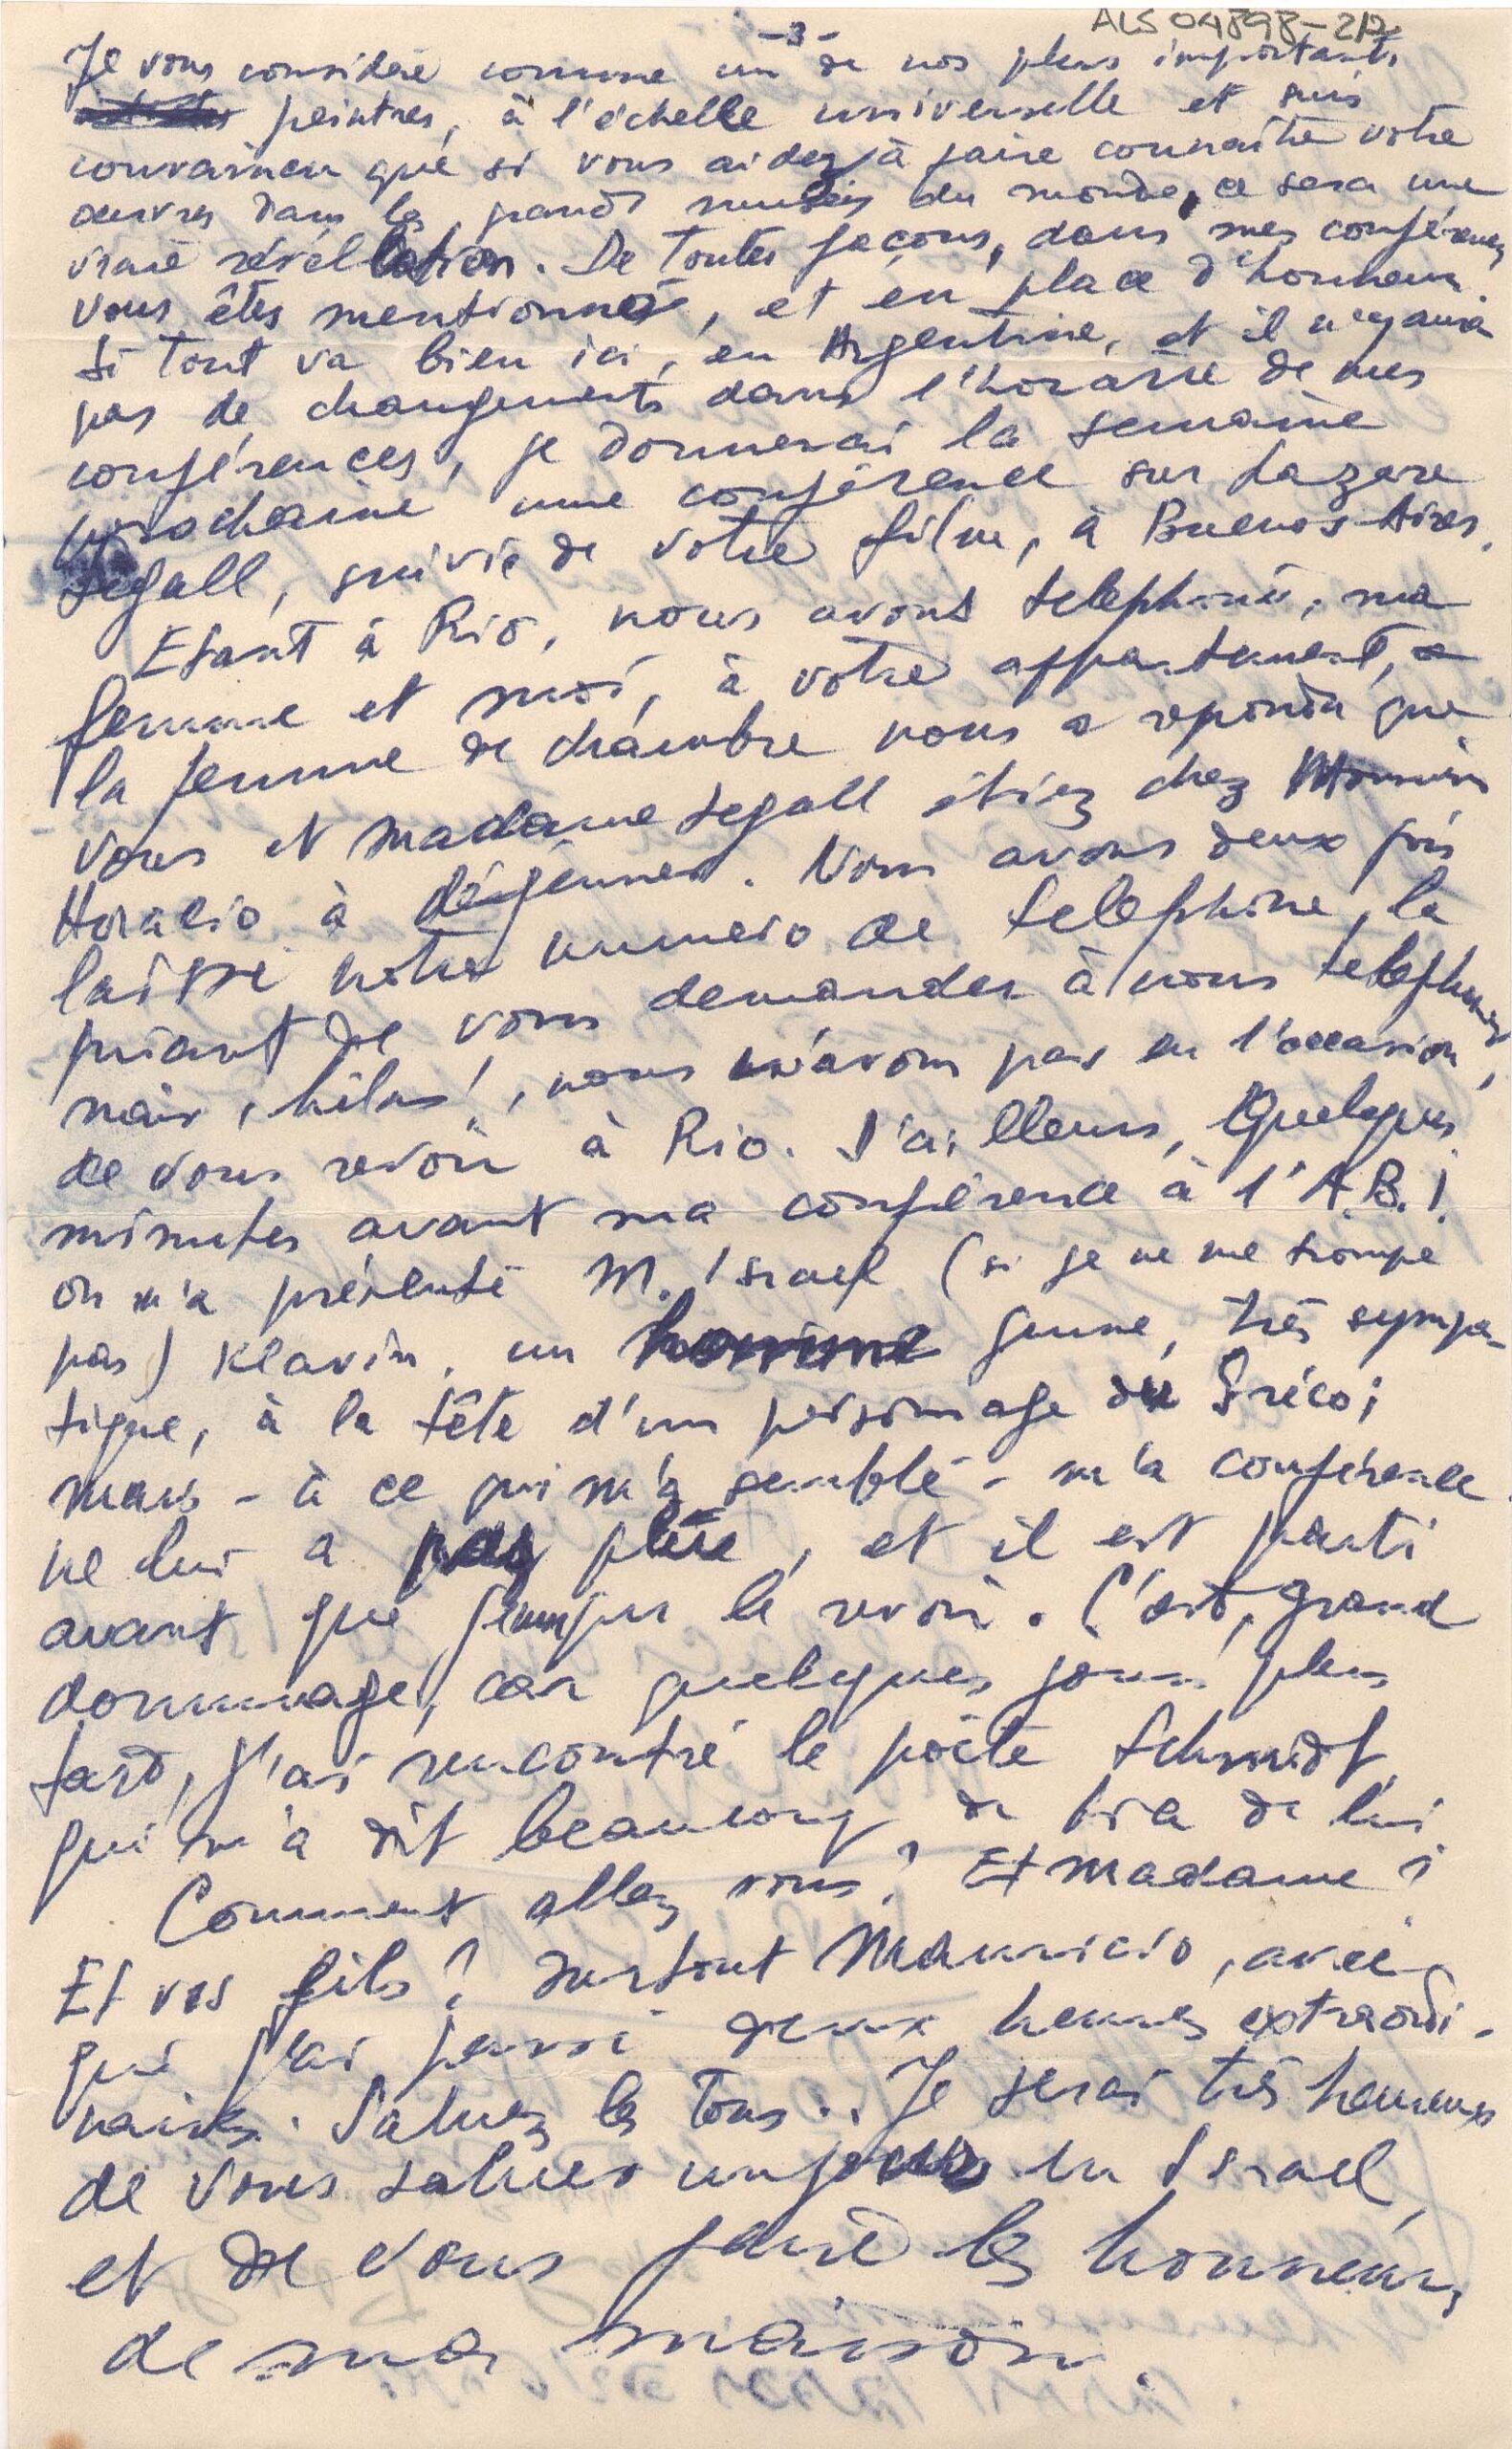 ALS 04898-2/2
-3-
Je vous considère comme un de nos plus importants
peintres, à l'échelle universelle et suis
convaincu que si vous aidez à faire connaître votre
oeuvres dans les grands musées du monde, ce sera une
vraie révéllation. De toutes façons, dans mes conférences
vous êtes mentionné, et en place d'honneur.
Si tout va bien ici, en Argentine, et il n'y aura
pas de changements dans l'horaire de mes
conférences, je donnerai la semaine
prochaine une conférence sur Lazare
Segall, suivie de votre film, à Buenos-Aires.
Etant à Rio, nous avons telephoné, ma
femme et moi, à votre appartement,
la femme de chambre nous a repondu que
vous et madame Segall étiez chez Monsieur
Horacio à déjeuner. Nous avons deux fois
laissé notre numero de telephone, la
priant de vous demander à nous telephoner
mais, hélas!, nous n'avons pas eu l'occasion
de vous revoir à Rio. D'ailleurs, quelques
minutes avant ma conférence à l'A.B.I.
on m'a présenté M. Israel (si je ne me trompe
pas) Klavin, un homme jeune, très sympa-
tique, à la tête d'un personage du Gréco;
mais - à ce qui m'a semblé - m'a conférence
ne lui a pas plue, et il est parti
avant que je le revoir. C'est grand
dommage, car quelques jours plus
tard, j'ai rencontré le poète Schmidt
qui m'a dit beaucoup de bien de lui.
Comment allez vous? Et madame?
Et vos fils? Surtout Mauricio, avec
qui j'ai passé deux heures extraordi-
naires. Saluez les tous.. Je serai très heureux
de vous saluer un jour en Israel,
et de vous faire les honneurs
de ma maison.